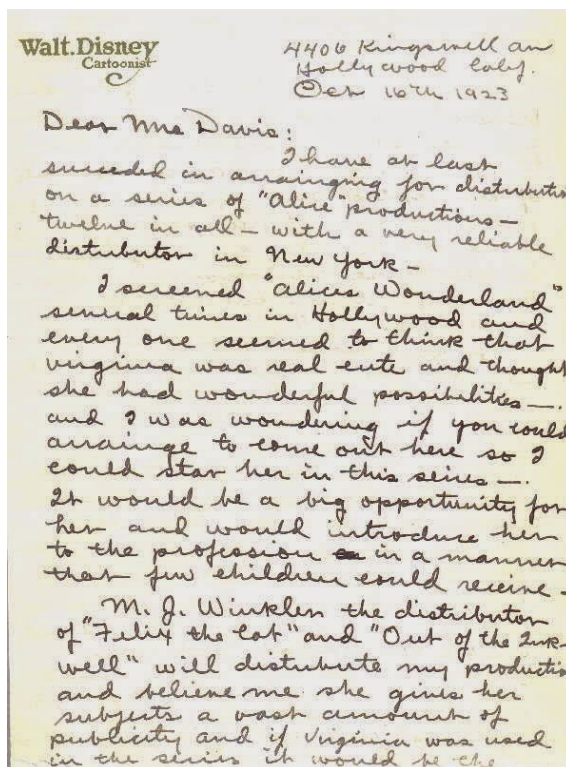 Walt. Disney
Cartoonist
4406 Kingswell av
Hollywood Calif.
Oct 16th 1923
Dear Mrs Davis:
I have at last
succeded in arrainging for distributio
on a series of "Alice" productions—
twelve in all — with a very reliable
distributor in New York —
I screened "Alices Wonderland"
several times in Hollywood and
every one seemed to think that
Virginia was real cute and thought
she had wonderful possibilities —.
and I was wondering if you could
arrainge to come out here so I
could star her in this series —.
It would be a big opportunity for
her and would introduce her
to the profession in a manner
that few children could receive -
M. J. Winkler the distributor
of "Felix the Cat" and "Out of the Ink-
well" will distribute my productio
and believe me she gives her
subjects a vast amount of
publicity and if Virginia was used
in the series it would be the